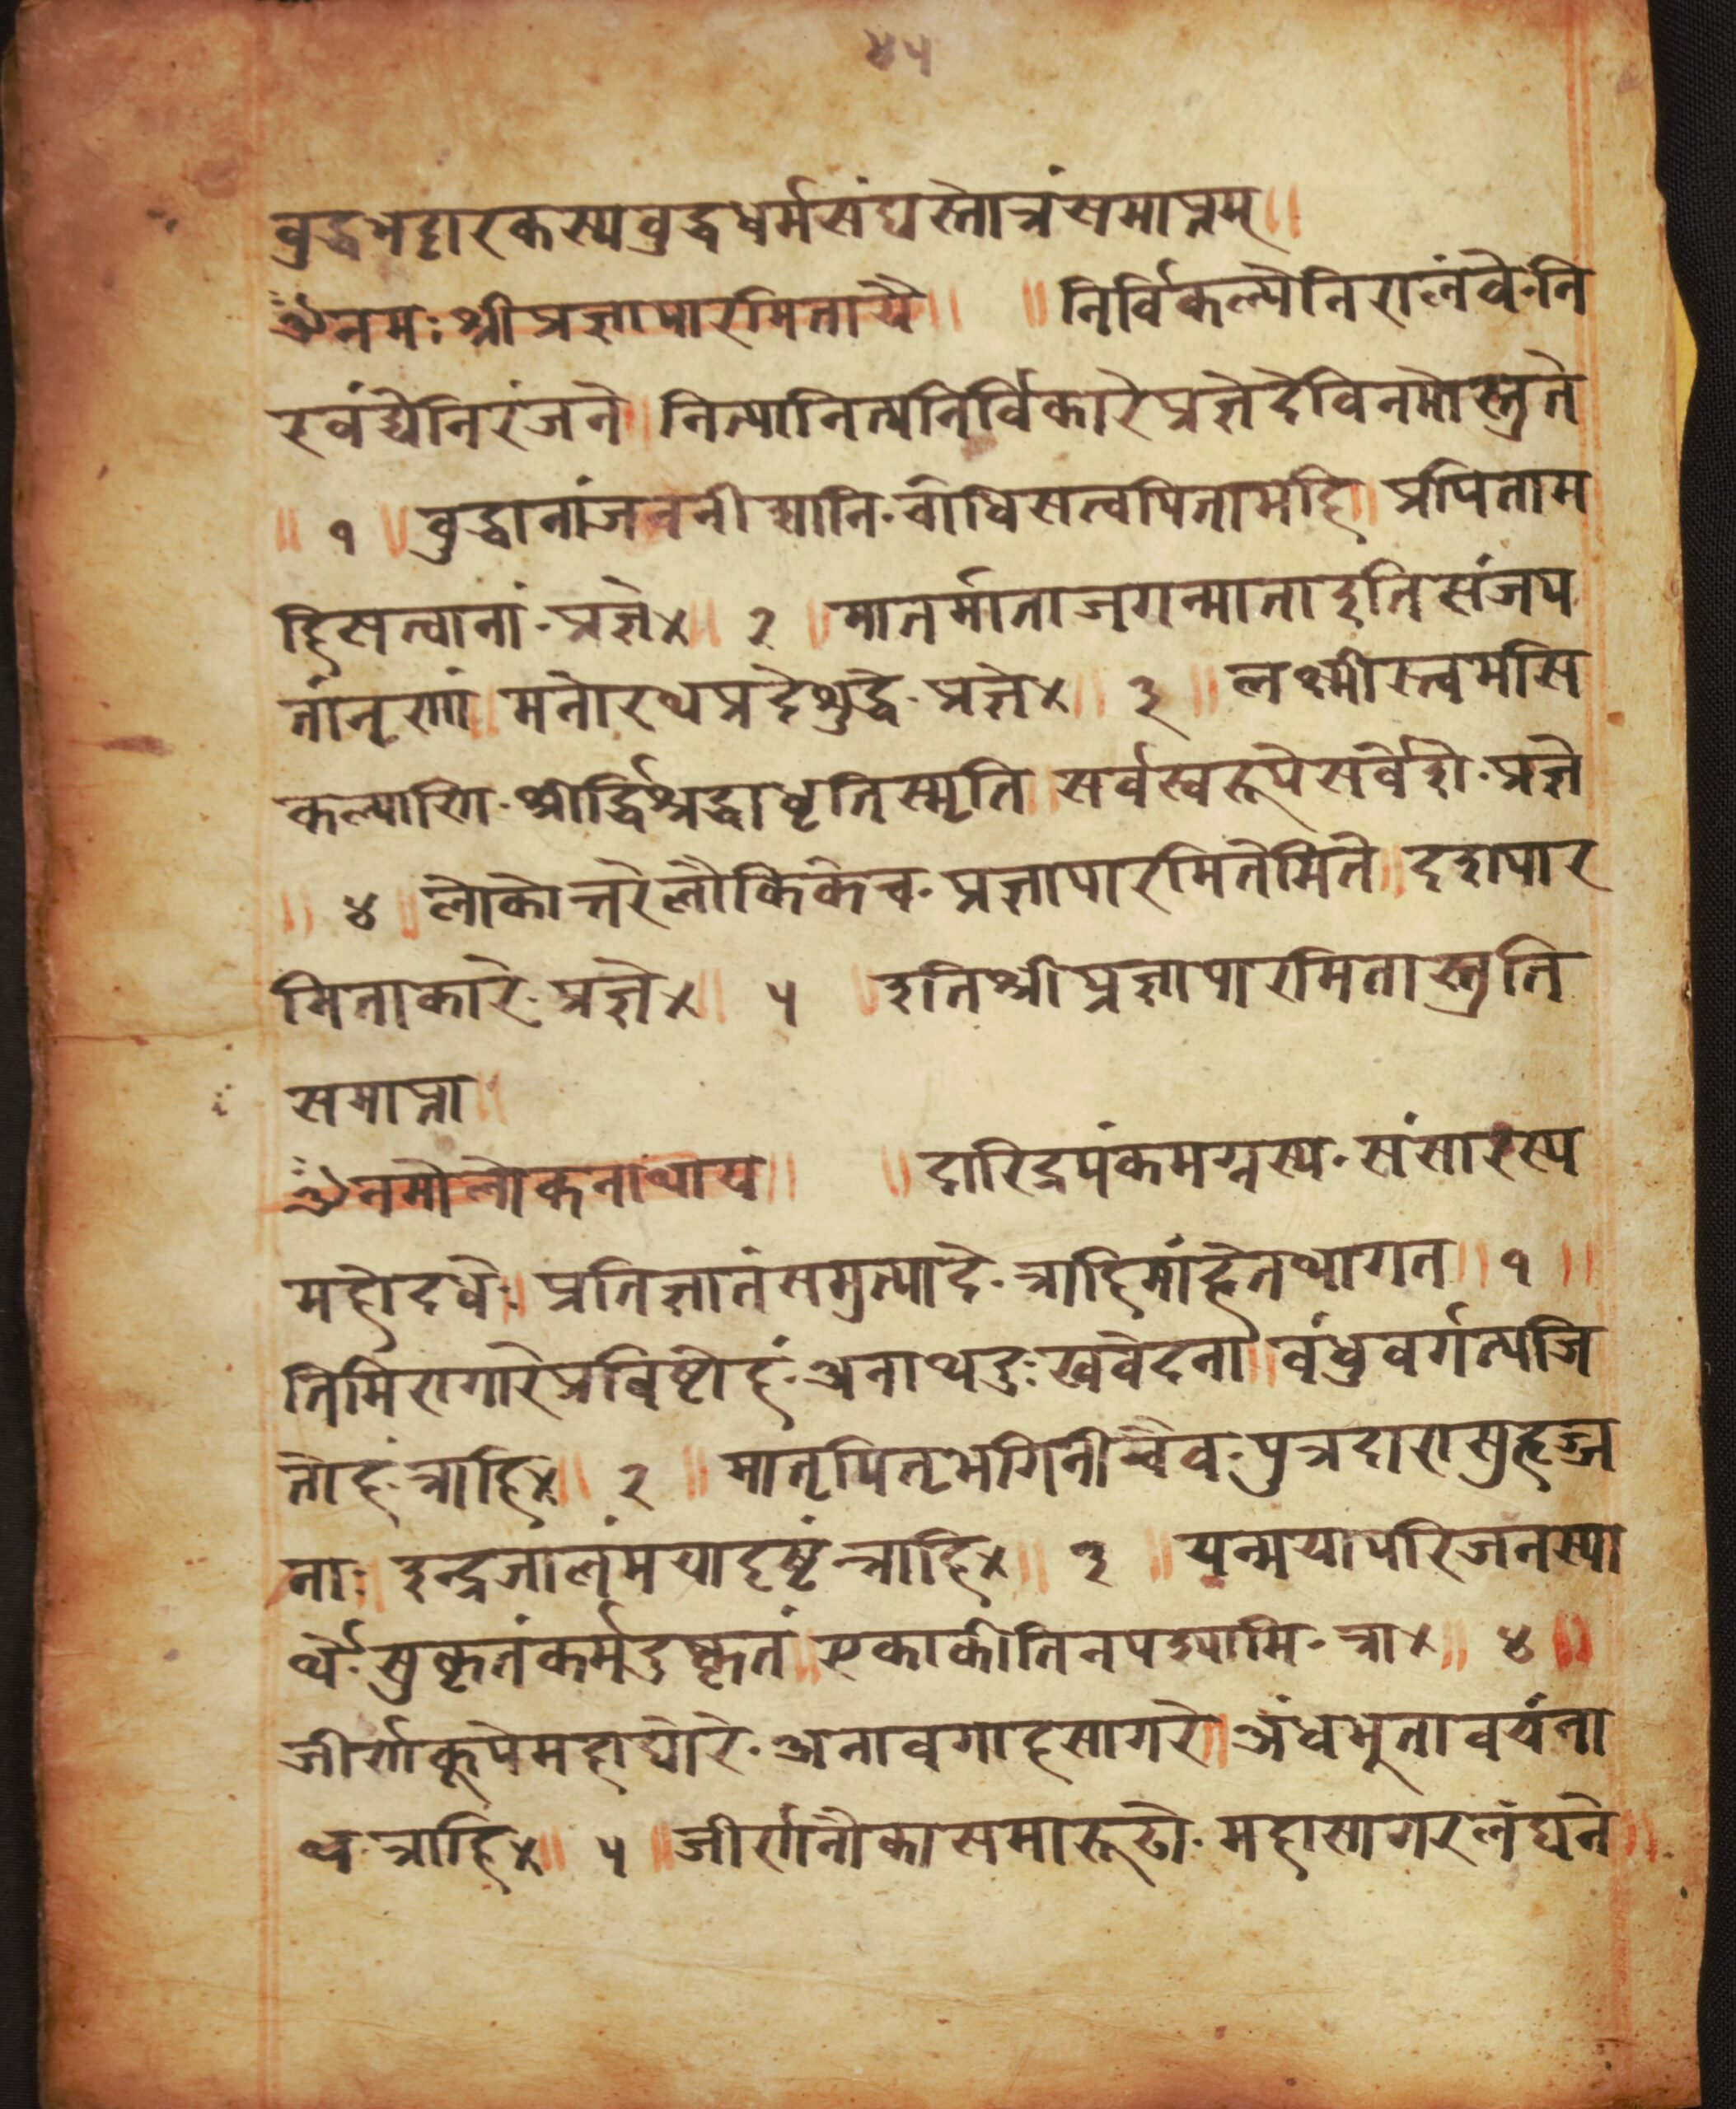 ४५
वुद्धभट्टारकस्यवुद्धधर्मसंघस्तोत्रंसमाप्तम्॥
ॐनमः श्रीप्रज्ञापारमितायै॥ ॥निर्विकल्पेनिरालंवे·नि
रवंद्येनिरंजने॥नित्यानित्यनिर्विकारेप्रज्ञेदेविनमोस्तुते
॥१॥वुद्धानांजननीध्यानि·वोधिसत्वपितामहि॥प्रपिताम
हिसत्वानां·प्रज्ञे×॥२॥मातर्माताजगन्माताइतिसंजप
तांनृणां॥मनोरथप्रदेशुद्धे·प्रज्ञे×॥३॥लक्ष्मीस्त्वमसि
कल्याणि·श्रीर्द्धिश्रद्धाधृतिस्मृति॥सर्वस्वरूपेसर्वेशे·प्रज्ञे
॥४॥लोकोत्तरेलौकिकेच·प्रज्ञापारमितेमिते॥दशपार
मिताकारे·प्रज्ञे×॥५॥इतिश्रीप्रज्ञापारमितास्तुति
समाप्ता॥
ॐनमोलोकनाथाय॥ ॥दारिद्रपंकमग्नस्य·संसारस्य
महोदधेः॥प्रतिज्ञातंसमुत्पादे·त्राहिमांहेतथागत॥१॥
तिमिरागारेप्रविष्टोहं·अनाथदुःखवेदना॥वंधुवर्गत्यजि
तोहं·त्राहि×॥२॥मातृपितृभगिनीचैव·पुत्रदारासुहृज्ज
नाः॥इन्द्रजालंमयादृष्टं·त्राहि×॥३॥यन्मयापरिजनस्या
र्थे·सुकृतंकर्मदुष्कृतं॥एकाकीतिनपश्यामि·त्रा×॥४॥
जीर्णकूपेमहाघोरे·अनावगाहसागरे॥अंधभुतावयंना
थ·त्राहि×॥५॥जीर्णनौकासमारूढो·महासागरलंघने॥